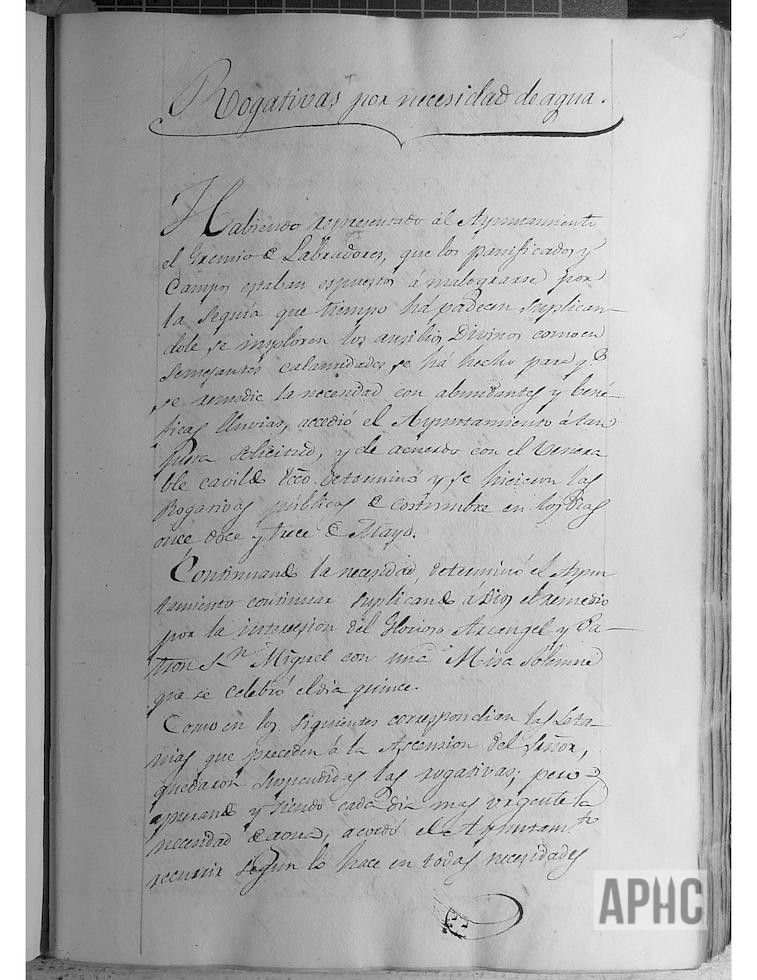 Rogativas por necesidad de agua.
Habiendo representado al Ayuntamiento
el Gremio de Labradores, que los panificados y
Campos estaban espuestos á malograrse por
la Sequia que tiempo há padecen suplican-
dole se imploren los ausilios Divinos como en
Semejantes calamidades se há hecho para q.e
se remedie la necesidad con abundantes y bené-
ficas lluvias, accedió el Ayuntamiento á tan
solicitud, y de acuerdo con el Venera
ble cavildo Ecco. determinó y se hicieron las
Rogativas públicas de costumbre en los dias
once doce y trece de Mayo.
Continuando la necesidad, determinó el Ayun
tamiento continuar suplicando á Dios el remedio
por la intercesion del Glorioso Arcangel y Pa-
tron S.n Miguel con una Misa Solemne
que se celebró el dia quince.
Como en los siguientes correspondian las Leta-
nias que preceden á la Ascension del Señor,
quedaron suspendidas las rogativas; pero
apurando y siendo cada dia mas urgente la
necesidad de agua, acordó el Ayuntam.to
recurrir segun lo hace en todas necesidades
APHC